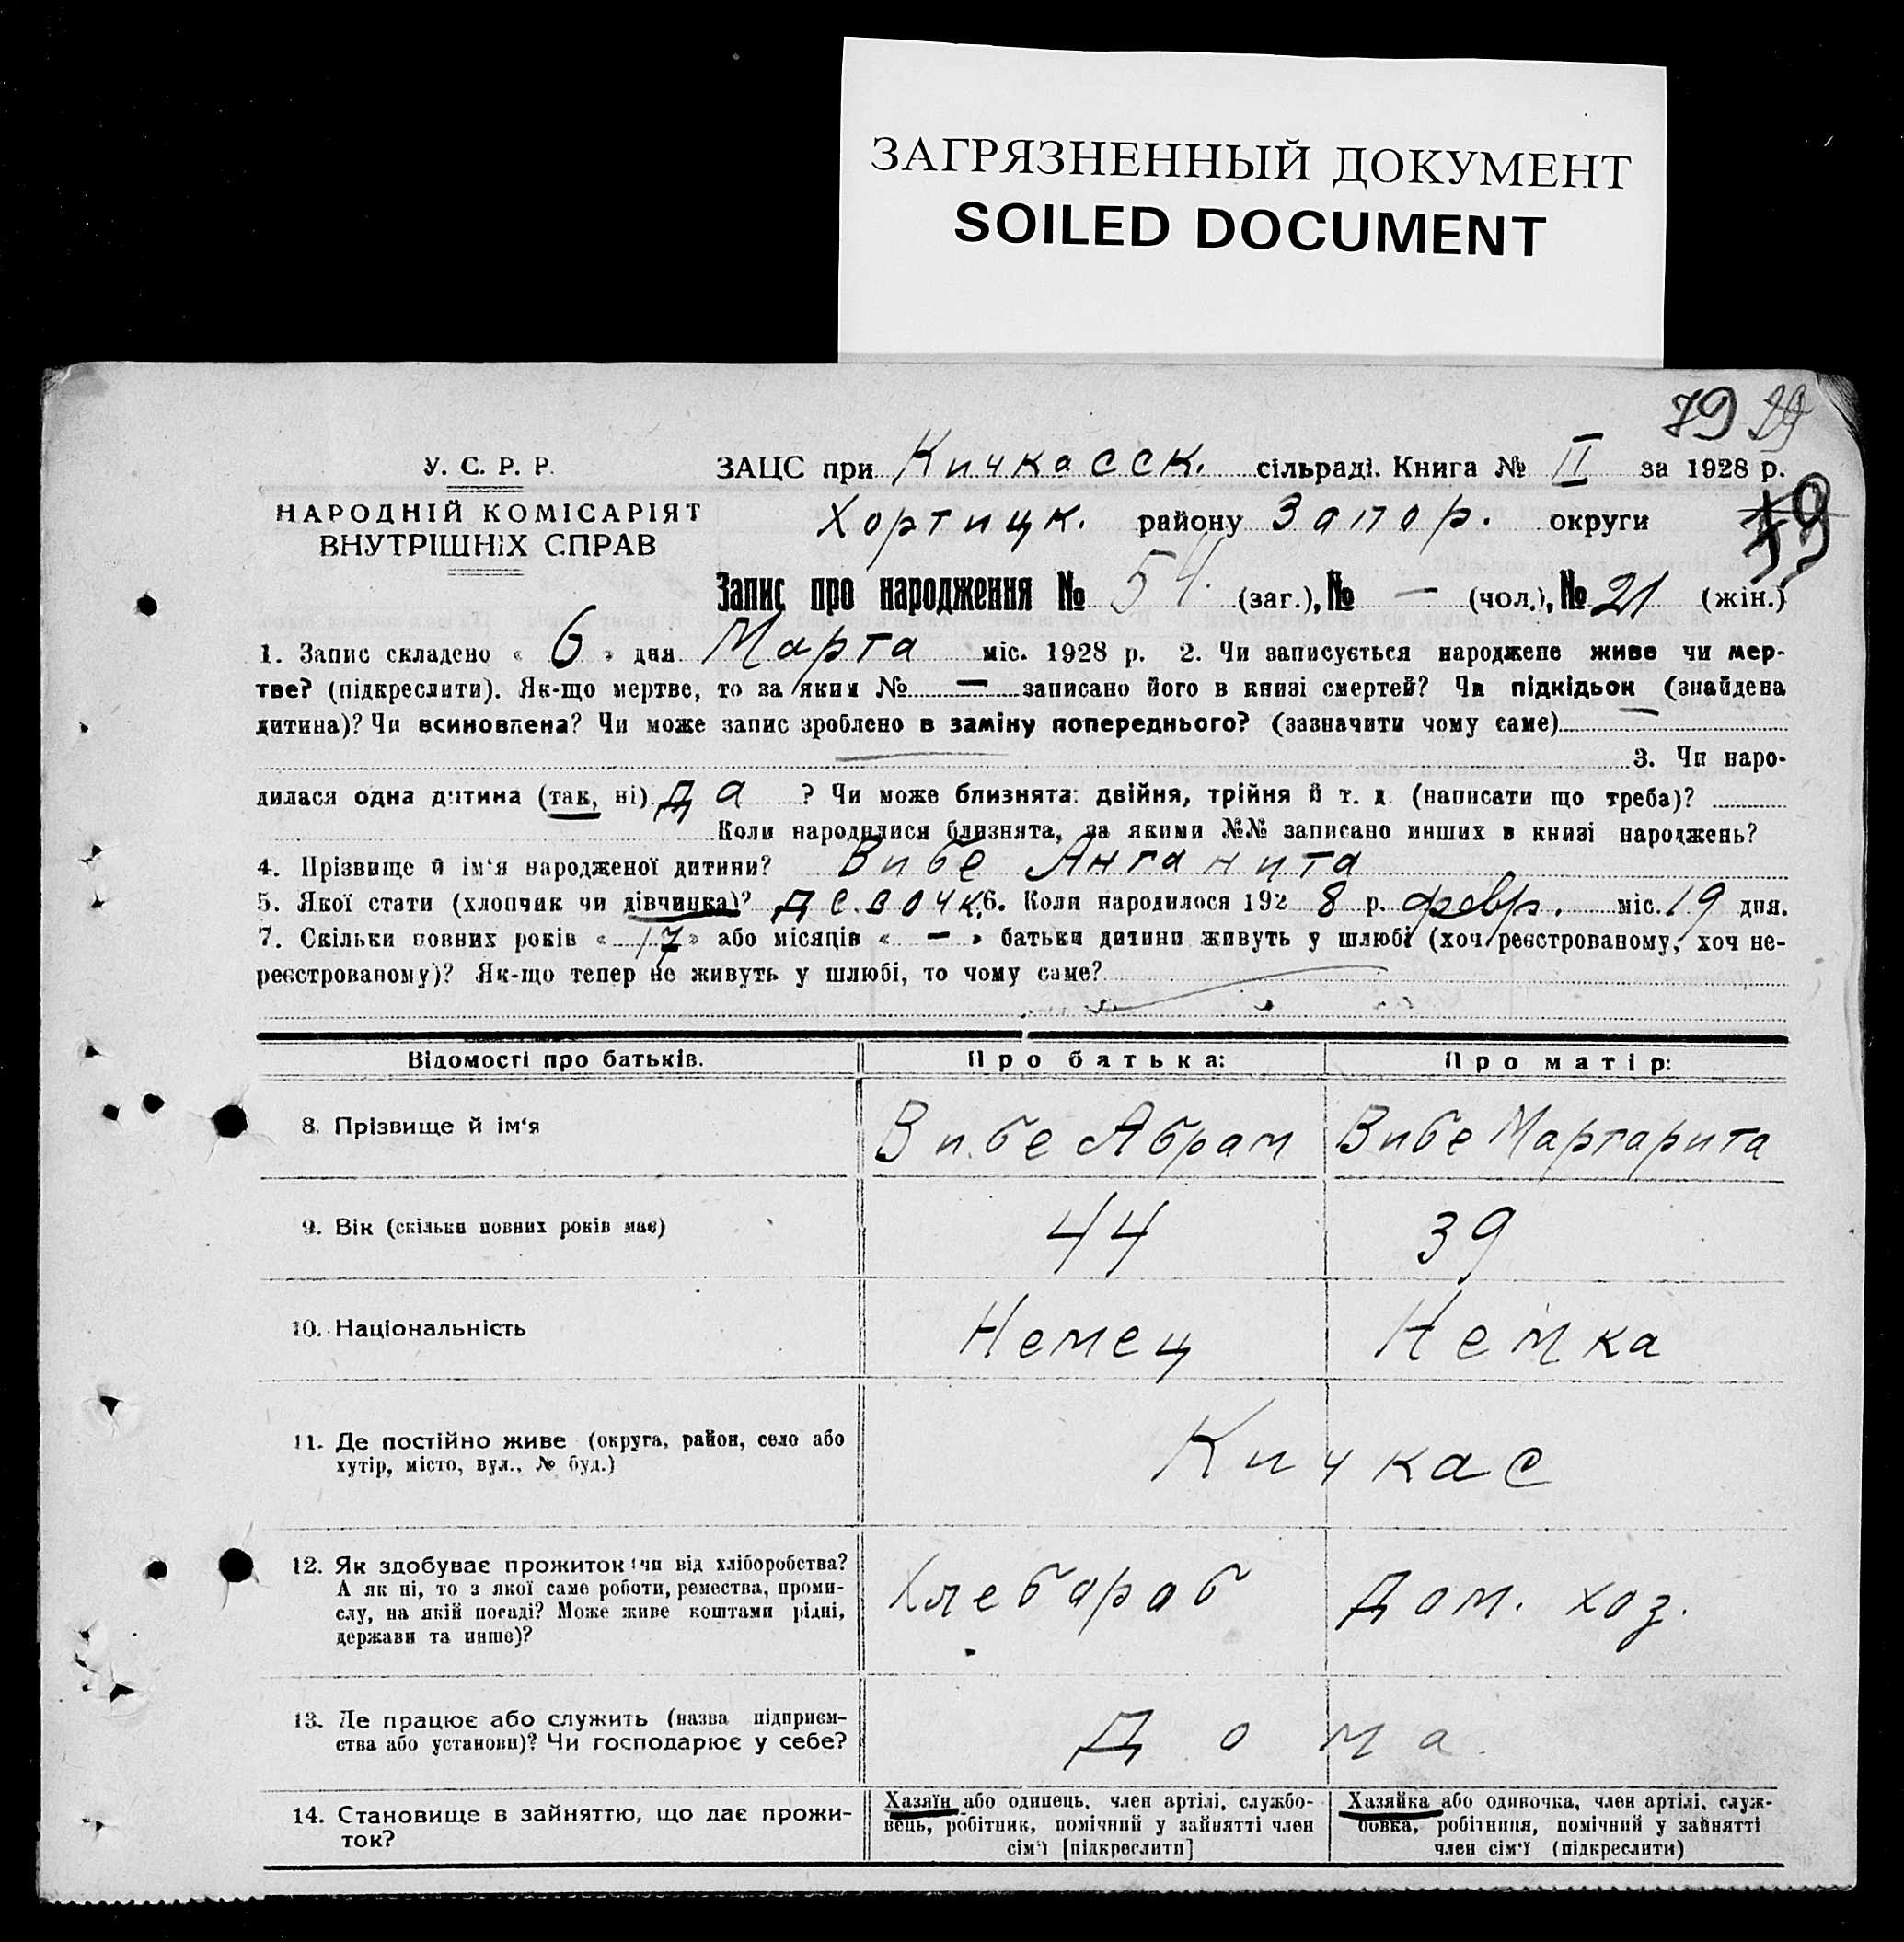 ЗАГРЯЗНЕННЫЙ ДОКУМЕНТ
SOILED DOCUMENT
79
У. С. Р. Р.
НАРОДНІЙ КОМІСАРІЯТ
ВНУТРІШНІХ СПРАВ
ЗАЦС при Кичкасск. сільраді. Книга № II за 1928 р.
Хортицк. району Запор. округи
Запис про народження № 54. (заг.), № — (чол.), № 21 (жін.)
1. Запис складено « 6 » дня Марта міс. 1928 р. 2. Чи записується народжене живе чи мер-
тве? (підкреслити). Як-що мертве, то за яким № — записано його в книзі смертей? Чи підкідьок (знайдена
дитина)? Чи всиновлена? Чи може запис зроблено в заміну попереднього? (зазначити чому саме)
3. Чи наро-
дилася одна дитина (так, ні) да ? Чи може близнята: двійня, трійня й т. д. (написати що треба)?
Коли народилися близнята, за якими №№ записано инших в книзі народжень?
4. Прізвище й ім‘я народженої дитини? Вибе
5. Якої статі (хлопчик чи дівчинка)? девочк. 6. Коли народилося 1928 р. февр. міс. 19 дня.
7. Скільки повних років « 17 » або місяців « – » батьки дитини живуть у шлюбі (хоч реєстрованому, хоч не-
реєстрованому)? Як-що тепер не живуть у шлюбі, то чому саме?
Відомості про батьків. Про батька: Про матір:
8. Прізвище й ім‘я Вибе Абрам Вибе Маргарита
9. Вік (скільки повних років має) 44 39
10. Національність Немец Немка
11. Де постійно живе (округа, район, село або
хутір, місто, вул., № буд.) Кичкас
12. Як здобуває прожиток: чи від хліборобства?
А як ні, то з якої саме роботи, ремества, проми-
слу, на якій посаді? Може живе коштами рідні,
держави та инше)? Хлебароб Дом. хоз.
13. Де працює або служить (назва підприєм-
ства або установи)? Чи господарює у себе? Дома.
14. Становище в зайняттю, що дає прожи-
ток?
Хазяїн або одинець, член артілі, службо-
вець, робітник, помічний у зайнятті член
сім‘ї [підкреслити]
Хазяйка або одиночка, член артілі, служ-
бовка, робітниця, помічний у зайнятті
член сім‘ї (підкреслити)